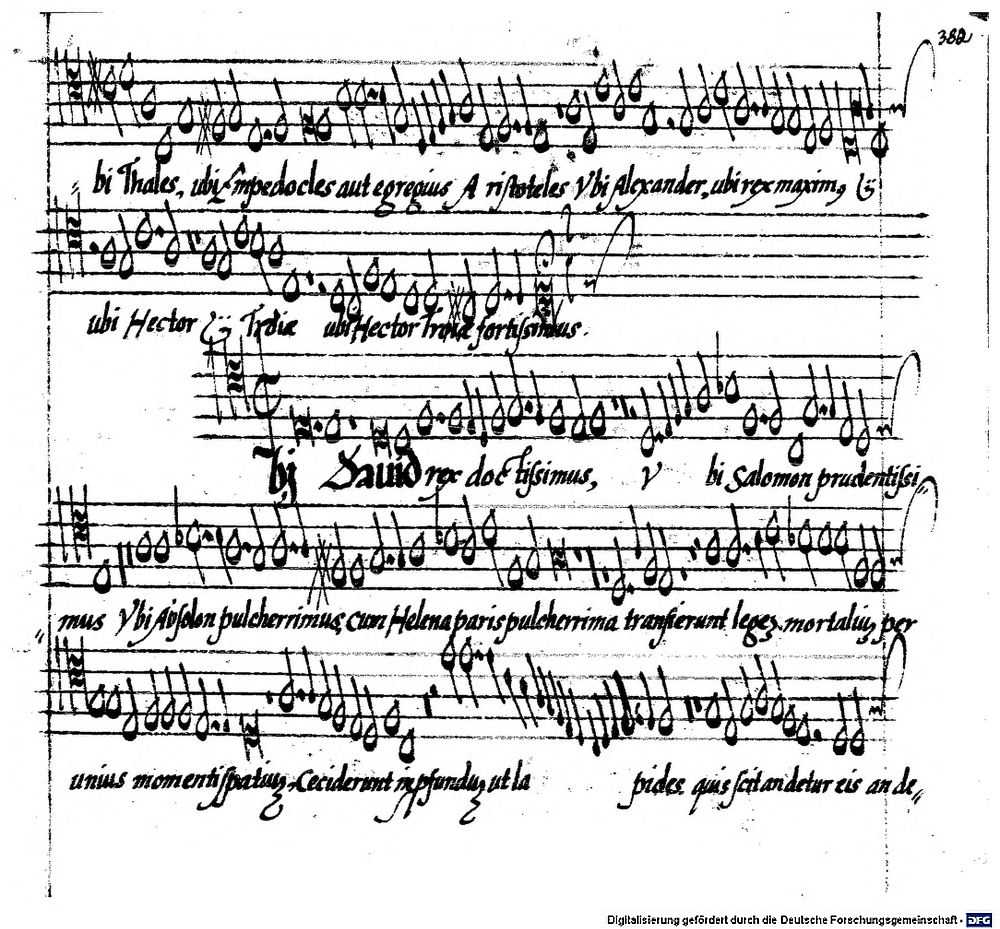 382
bi Thales, ubi Empedocles aut egregius A ristoteles Vbi Alexander, ubi rex maxim9 &
ubi Hector Troiæ ubi Hector Troiæ fortissimus.
Vbi David rex doctissimus, V bi Salomon prudentissi
mus Vbi Absolon pulcherrimus, cum Helena paris pulcherrima transierunt leges mortaliuȝ per
unius momenti spatiuȝ. Ceciderunt in pfunduȝ ut la pides. quis scit an detur eis an de
Digitalisierung gefördert durch die Deutsche Forschungsgemeinschaft - DFG